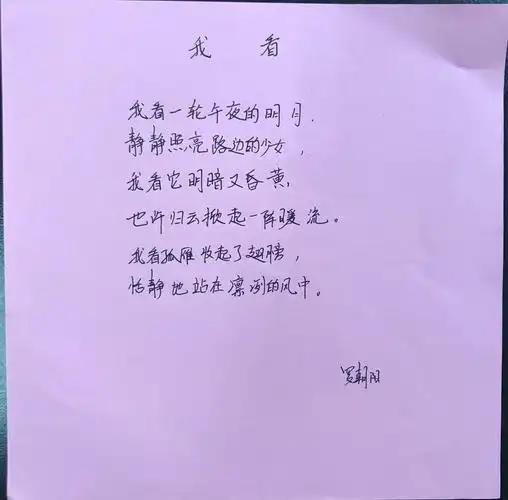 我 看
我看一轮午夜的明月.
静静照亮路边的少女,
我看它明暗又昏黄,
也许归云掀起一阵暖流。
我看孤雁收起了翅膀,
恬静地站在凛冽的风中。
罗朝阳